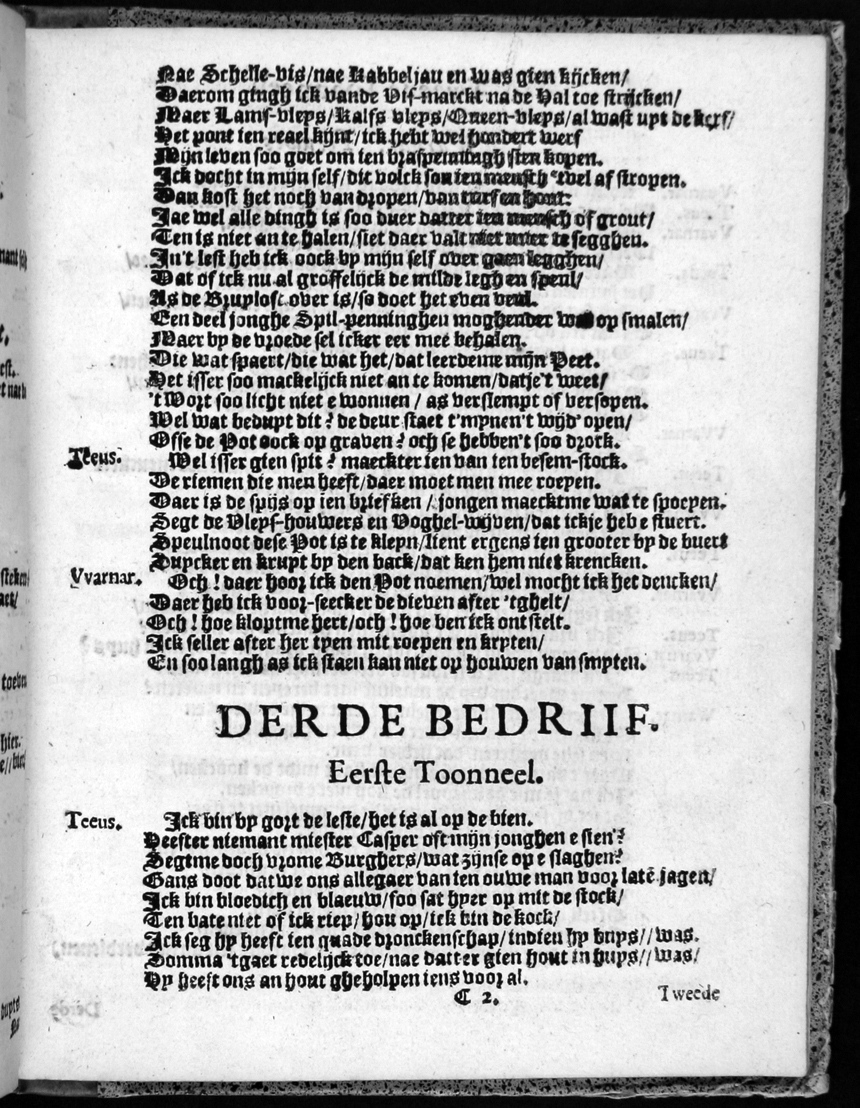 Nae Schelle-vis/nae Kabbeljau en was gien kijcken/
Daerom gingh ick vande Vis-marckt na de Hal toe strijcken/
Maer Lams-vleys/Kalfs vleys/Queen-vleys/al wast upt de kerf/
Het pont ien reael kijnt/ick hebt wel hondert werf
Mijn leven soo goet om ien braspenningh sien kopen.
Ick docht in mijn self/dit volck sou ien mensch 'tvel af stropen.
Dan kost het noch van dropen/van turf en hout:
Jae wel alle dingh is soo duer datter ien mensch of grout/
Ten is niet an te halen/siet daer valt niet meer te segghen.
In't lest heb ick oock by mijn self over gaen legghen/
Dat of ick nu al groffelijck de milde legh en speul/
As de Bruylost over is/so doet het even veul.
Een deel jonghe Spil-penninghen moghender wat op smalen/
Maer by de vroede sel icker eer mee behalen.
Die wat spaert/die wat het/dat leerdeme mijn Peet.
Het isser soo mackelijck niet an te komen/datje't weet/
'tWort soo licht niet e wonnen / as verslempt of versopen.
Wel wat beduyt dit? de deur staet t'mynen't wijd' open/
Offe de Pot oock op graven? och se hebben't soo drock.
Teeus. Wel isser gien spit? maeckter ien van ien besem-stock.
De riemen die men heeft/daer moet men mee roepen.
Daer is de spijs op ien briefken / jongen maecktme wat te spoeyen.
Segt de Vleys-houwers en Voghel-wijven/dat ickje heb e stuert.
Speulnoot dese Pot is te kleyn/lient ergens ien grooter by de buert
Duycker en kruyt by den back/dat ken hem niet krencken.
Vvarnar. Och! daer hoor ick den Pot noemen/wel mocht ick het dencken/
Daer heb ick voor-seecker de dieven after 'tghelt/
Och! hoe kloptme hert/och! hoe ben ick ontstelt.
Ick seller after her tyen mit roepen en kryten/
En soo langh as ick staen kan niet op houwen van smyten.
DERDE BEDRIIF.
Eerste Toonneel.
Teeus. Ick bin by gort de leste/het is al op de bien.
Heefter niemant miester Casper oft mijn jonghen e sien?
Segtme doch vrome Burghers/wat zijnse op e slaghen?
Gans doot datwe ons allegaer van ien ouwe man voor latē jagen/
Ick bin bloedich en blaeuw/soo sat hyer op mit de stock/
Ten bate niet of ick riep/hou op/ick bin de kock/
Ick seg hy heeft ien quade dronckenschap/indien hy buys//was.
Somma 'tgaet redelijck toe/nae datter gien hout in huys//was/
Hy heeft ons an hout gheholpen iens voor al.
C 2. Tweede